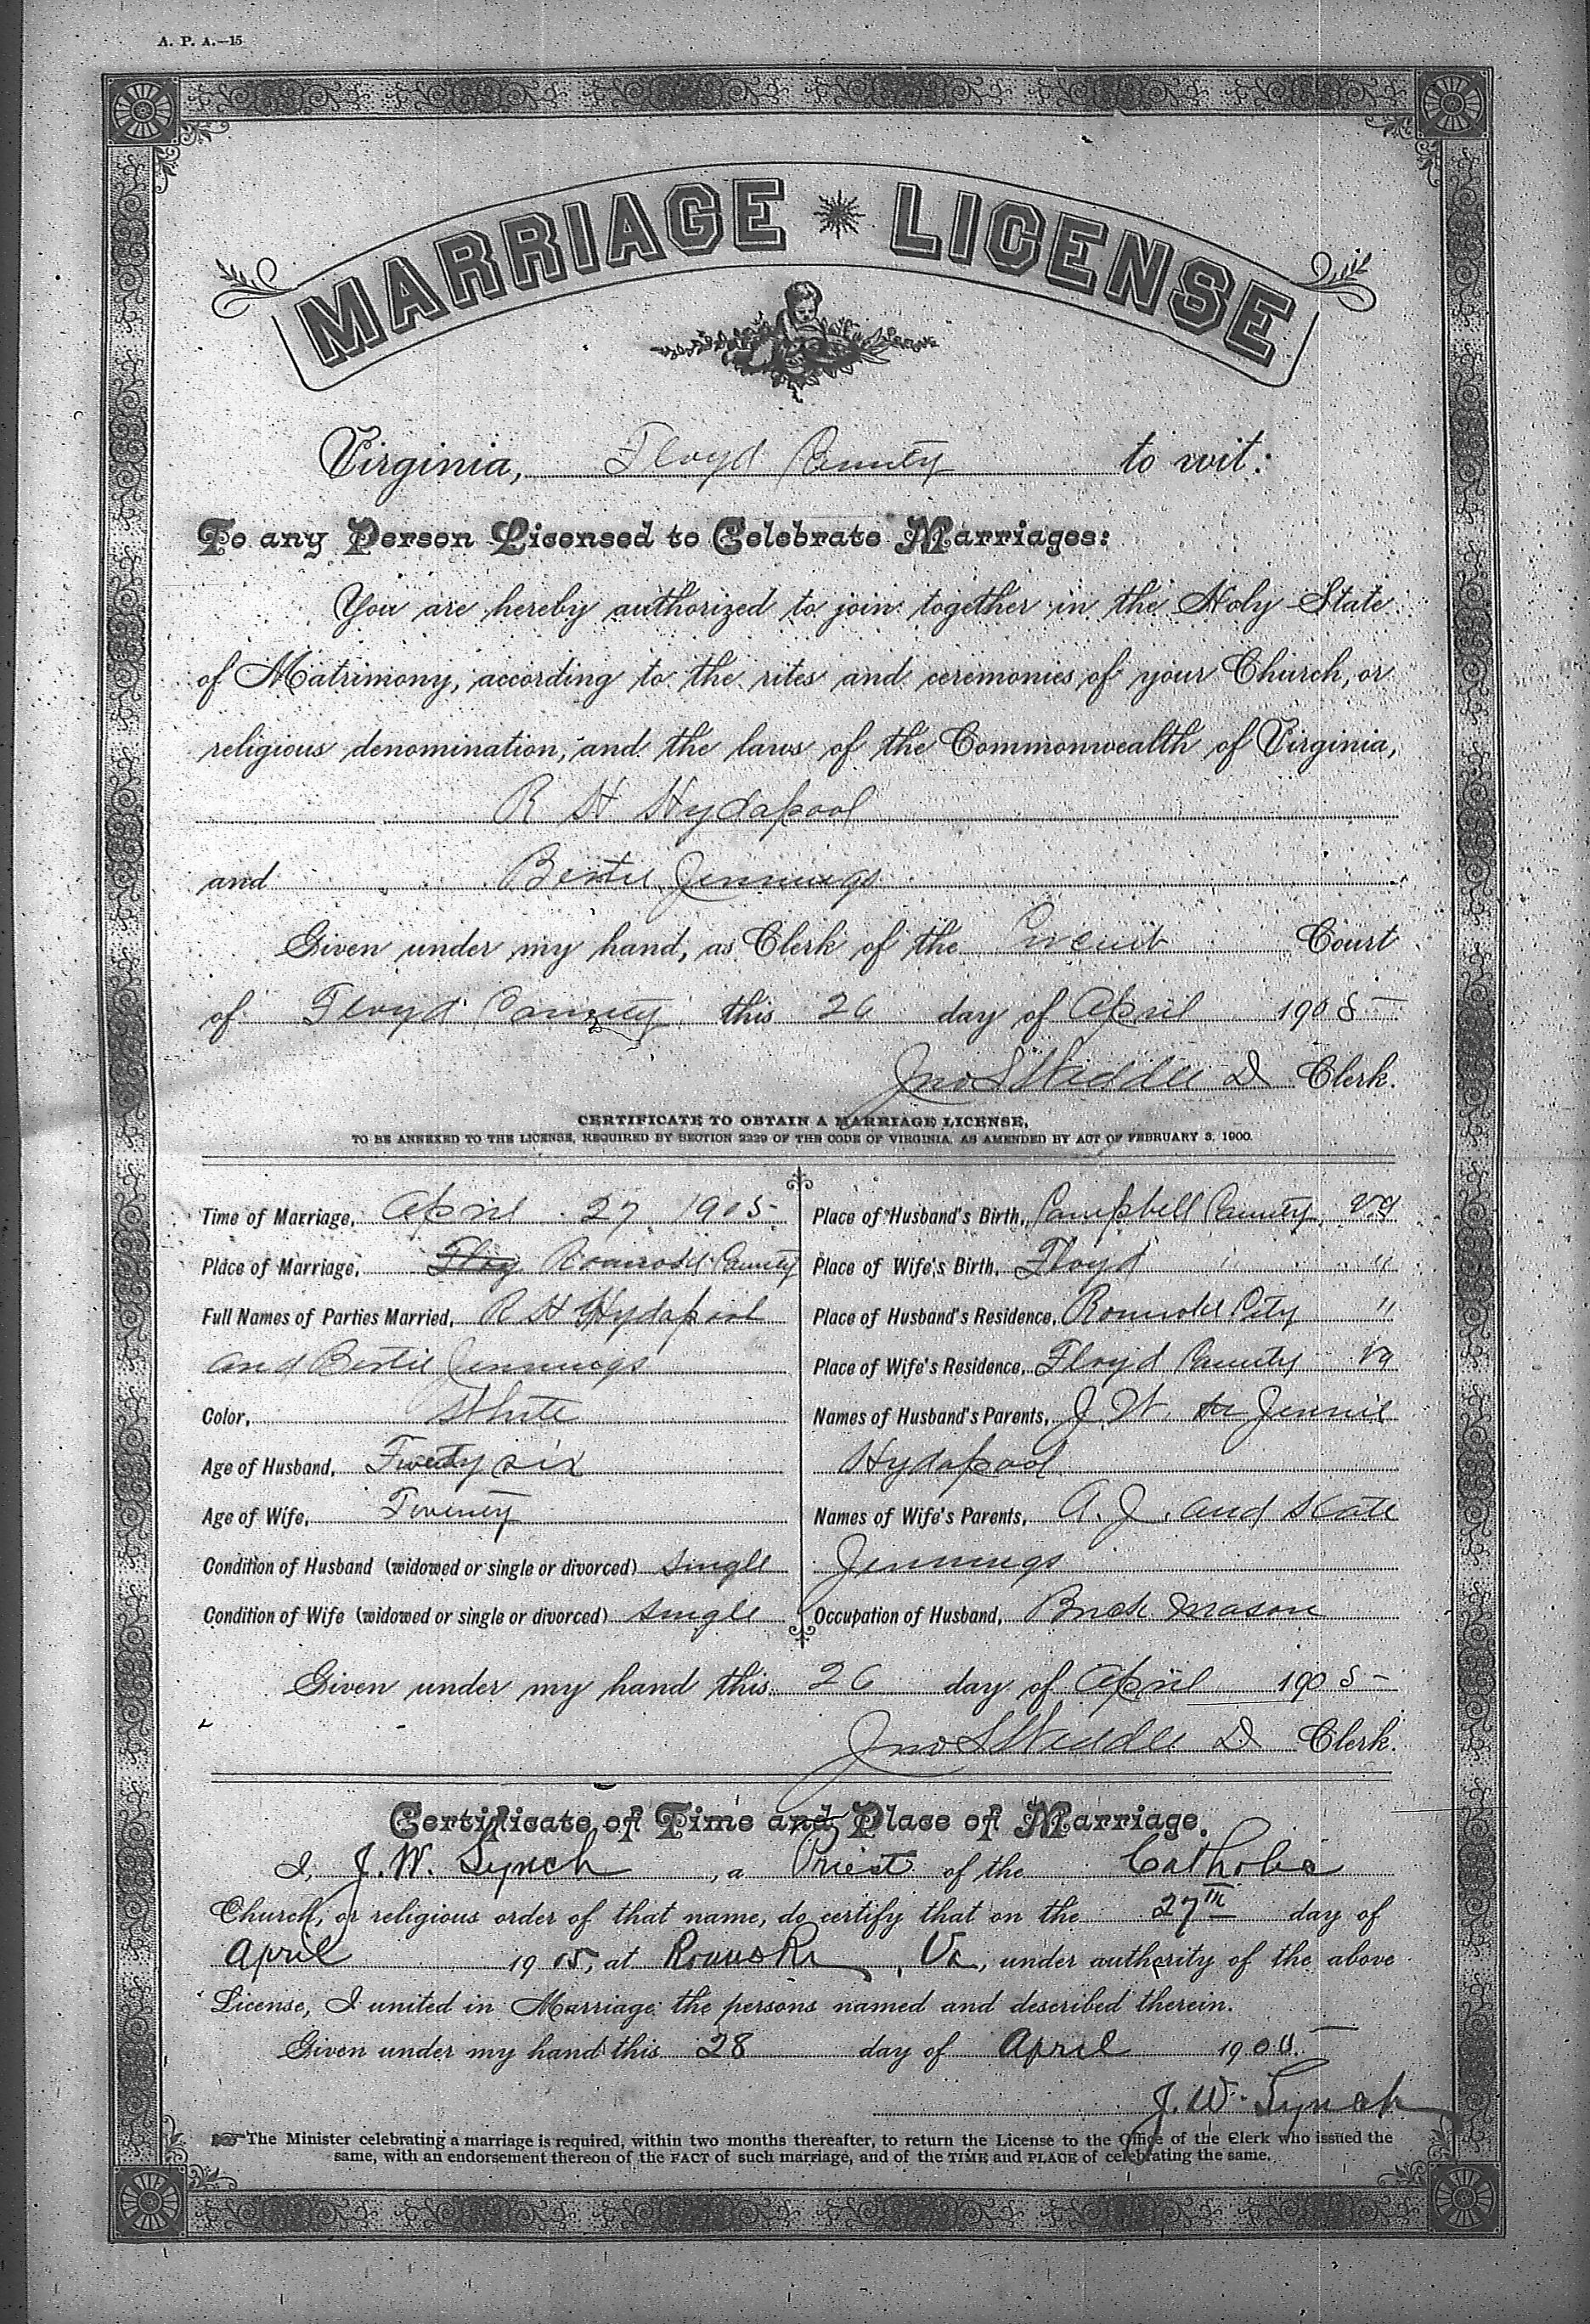 A. P. A.—15
MARRIAGE LICENSE
Virginia, Floyd County to wit:
To any Person Licensed to Celebrate Marriages:
You are hereby authorized to join together in the Holy State
of Matrimony, according to the rites and ceremonies of your Church, or
religious denomination, and the laws of the Commonwealth of Virginia,
R H Hydapool
and Bertie Jennings
Given under my hand, as Clerk of the Circuit Court
of Floyd County this 26 day of April 1905
Jno S Weddle D Clerk.
CERTIFICATE TO OBTAIN A MARRIAGE LICENSE,
TO BE ANNEXED TO THE LICENSE, REQUIRED BY SECTION 2229 OF THE CODE OF VIRGINIA, AS AMENDED BY ACT OF FEBRUARY 3, 1900.
Time of Marriage, April 27 1905
Place of Marriage, Floy Roanoke County
Full Names of Parties Married, R H Hydapool
and Bertie Jennings
Color, White
Age of Husband, Twenty six
Age of Wife, Twenty
Condition of Husband (widowed or single or divorced) Single
Condition of Wife (widowed or single or divorced) Single
Place of Husband's Birth, Campbell County, Va
Place of Wife's Birth, Floyd " "
Place of Husband's Residence, Roanoke City "
Place of Wife's Residence, Floyd County Va
Names of Husband's Parents, J. W. & Jennie
Hydapool
Names of Wife's Parents, A. J. and Kate
Jennings
Occupation of Husband, Brick Mason
Given under my hand this 26 day of April 1905
Jno S Weddle D Clerk.
Certificate of Time and Place of Marriage.
I, J. W. Lynch, a Priest of the Catholic
Church, or religious order of that name, do certify that on the 27th day of
April 1905, at Roanoke, Va, under authority of the above
License, I united in Marriage the persons named and described therein.
Given under my hand this 28 day of April 1905.
J. W. Lynch
The Minister celebrating a marriage is required, within two months thereafter, to return the License to the Office of the Clerk who issued the
same, with an endorsement thereon of the FACT of such marriage, and of the TIME and PLACE of celebrating the same.